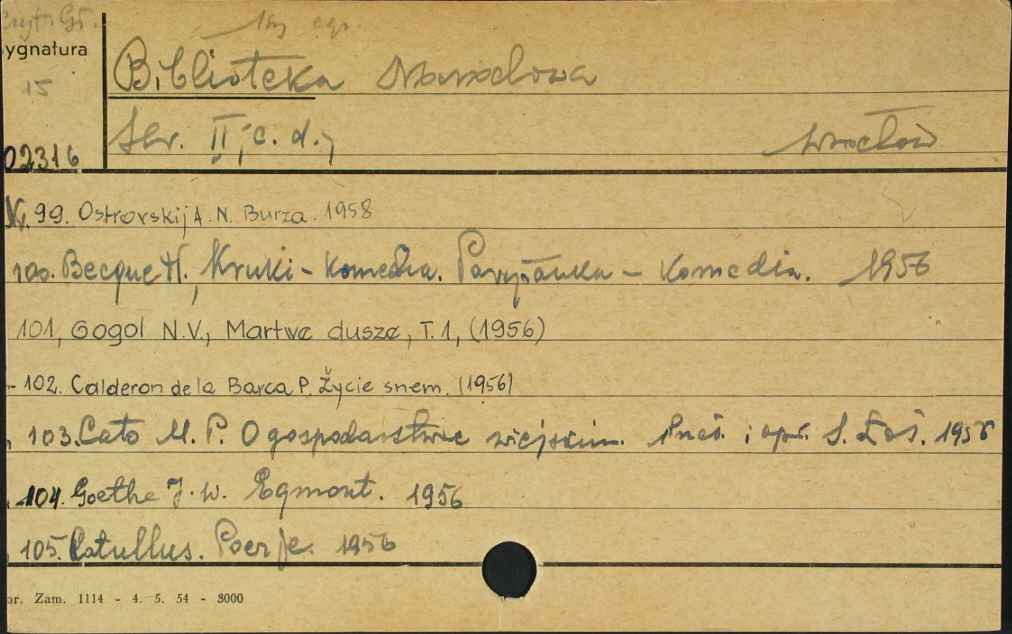 Czyt. Gł. 1 egz.
Sygnatura
15
Biblioteka Narodowa
Ser. II, c. d.,
Wrocław
02316
N. 99. Ostrovskij A. N. Burza. 1958
100. Becque H., Kruki - komedia. Paryżanka - komedia. 1956
101, Gogol N.V., Martwe dusze, T.1, (1956)
- 102. Calderon de la Barca P. Życie snem. (1956)
103. Cato M. P. O gospodarstwie wiejskim. i opr. S. Łoś. 1956
104. Goethe J. W. Egmont. 1956
105. Catullus. Poezje. 1956
or. Zam. 1114 - 4. 5. 54 - 3000